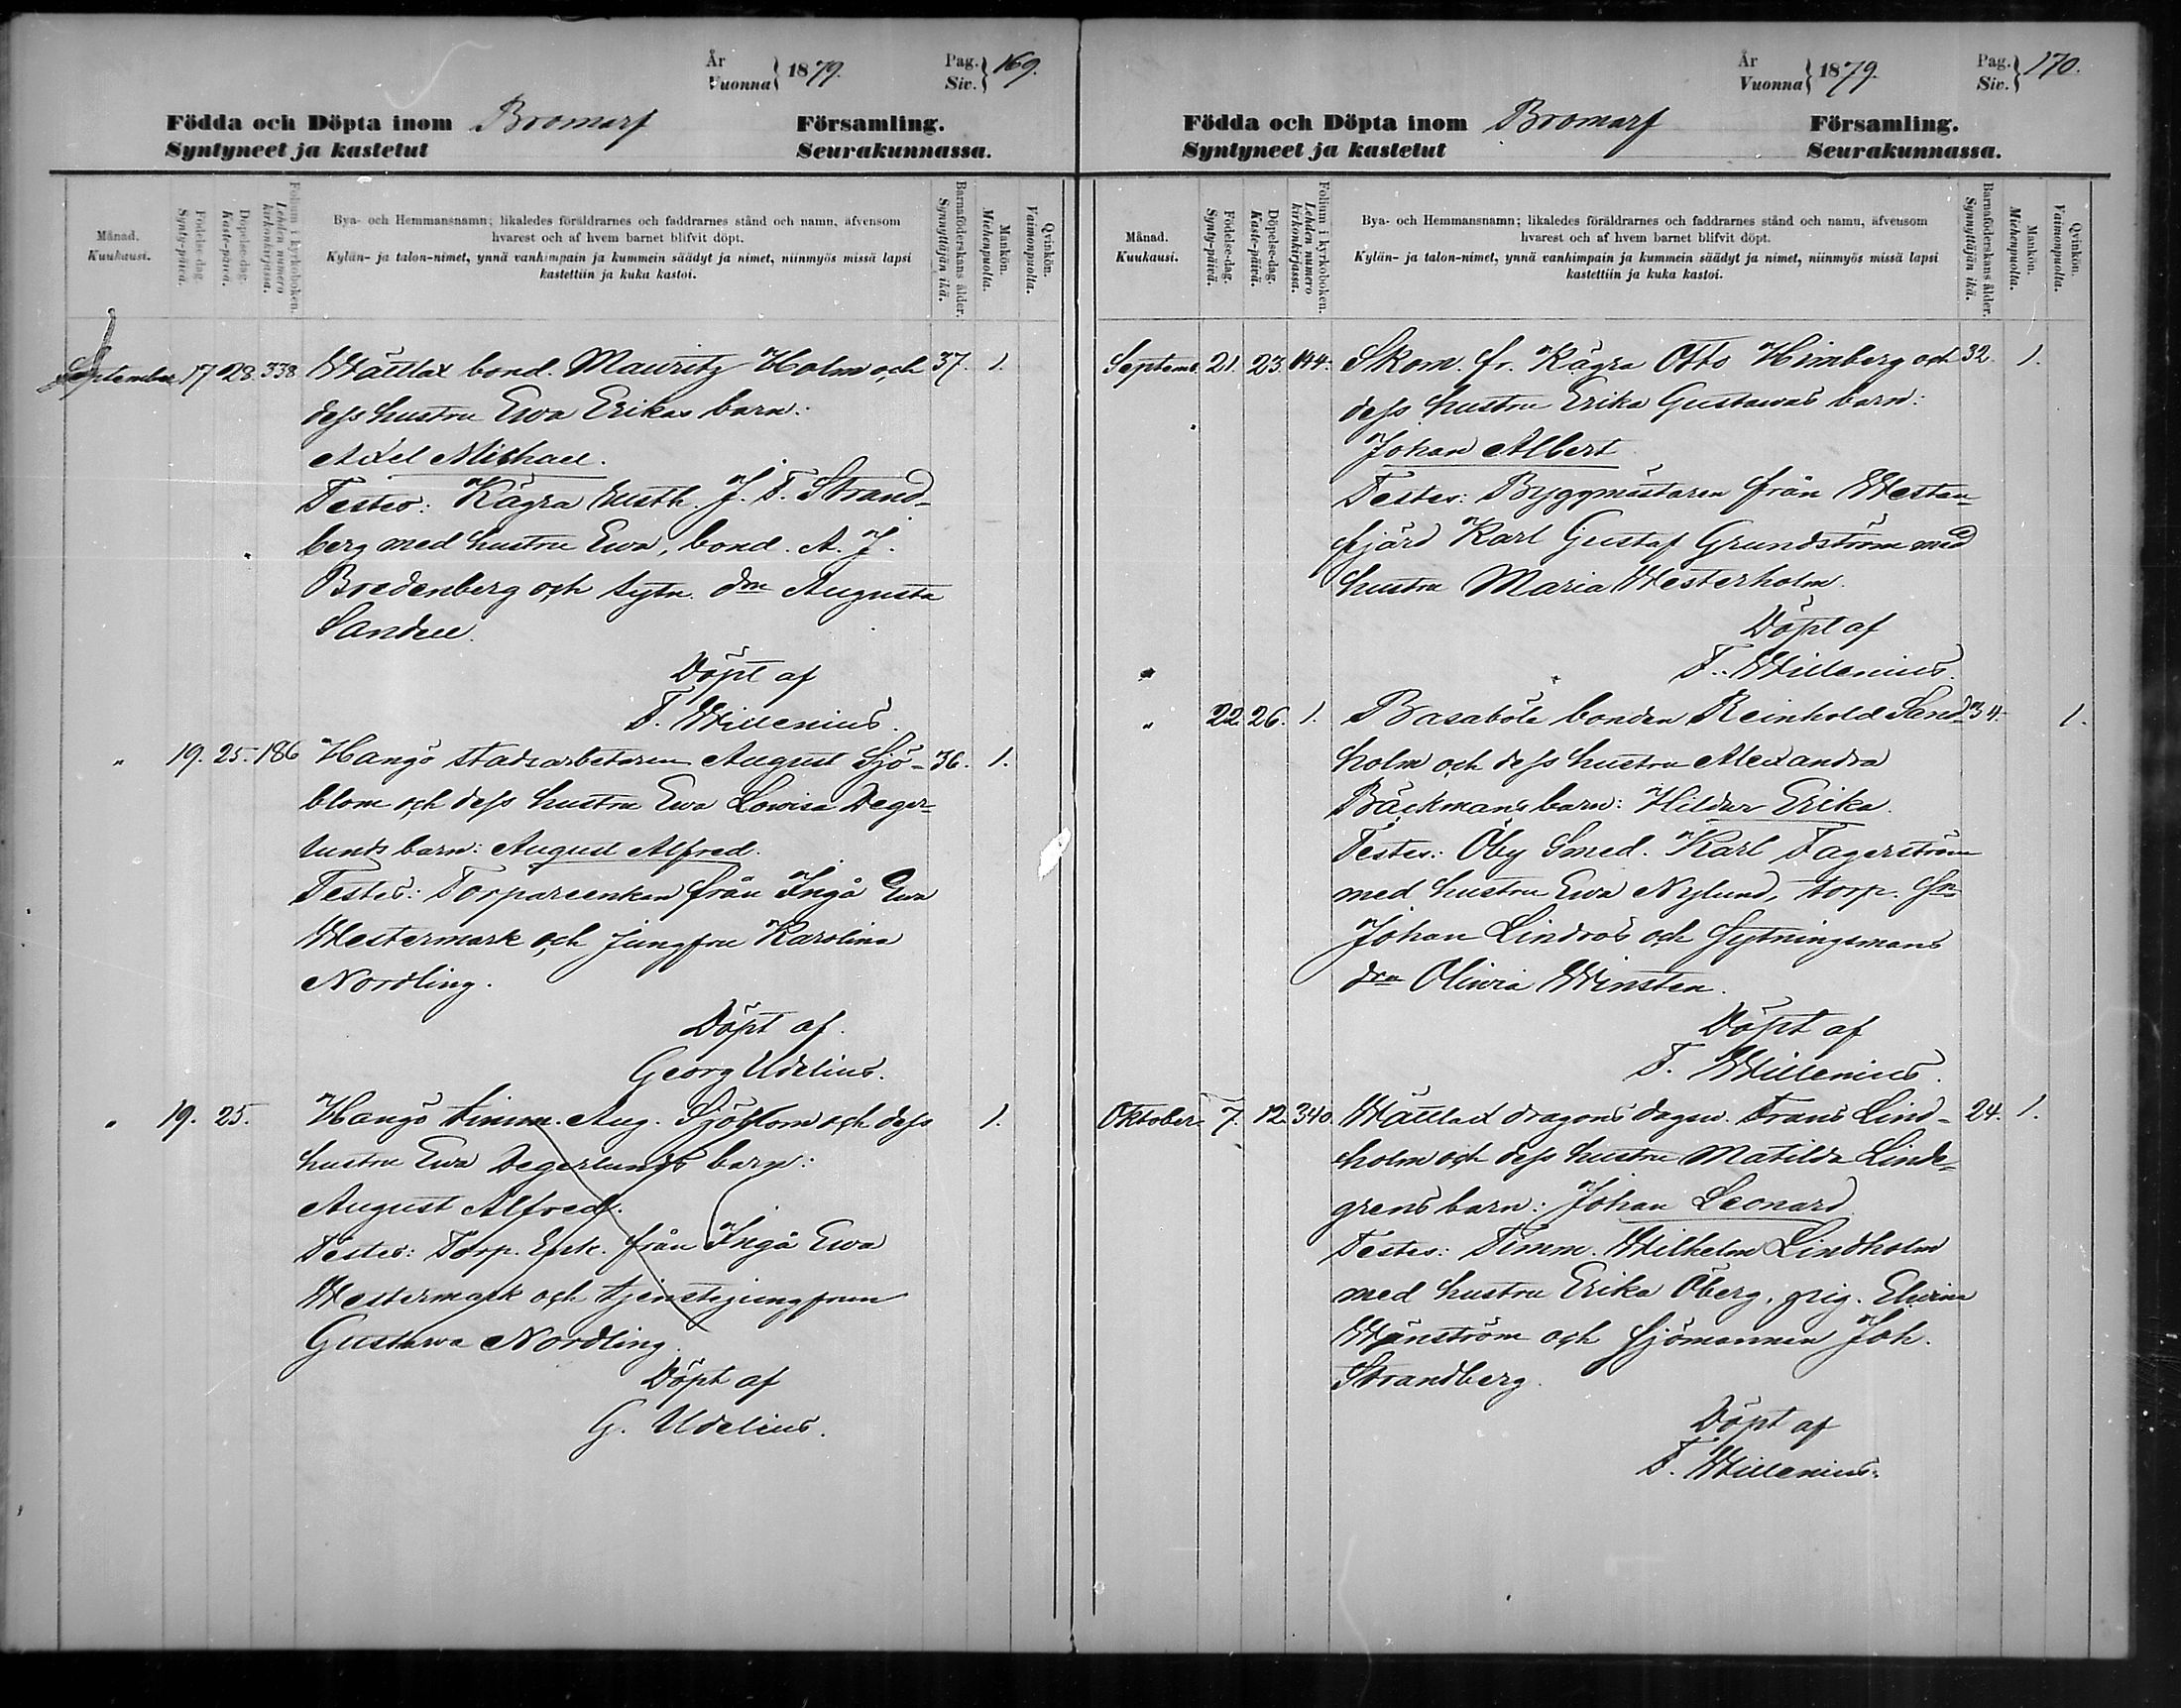 År
Vuonna } 1879.
Pag.
Siv. } 169.
Födda och Döpta inom Bromarf Församling.
Syntyneet ja kastetut Seurakunnassa.
Månad.
Kuukausi.
Födelse-dag.
Synty-päivä.
Döpelse-dag.
Kaste-päivä.
Folium i kyrkoboken.
Lehden numero
kirkonkirjassa.
Bya- och Hemmansnamn; likaledes föräldrarnes och faddrarnes stånd och namn, äfvensom
hvarest och af hvem barnet blifvit döpt.
Kylän- ja talon-nimet, ynnä vanhimpain ja kummein säädyt ja nimet, niinmyös missä lapsi
kastettiin ja kuka kastoi.
Barnaföderskans ålder.
Synnyttäjän ikä.
Mankön.
Miehenpuolia.
Qvinkön.
Vaimonpuolia.
September 17 28. 338 Wättlax bond. Mauritz Holm och 37. 1.
dess hustru Ewa Erikas barn:
Axel Michael.
Testes: Kägra husth. J. F. Strand-
berg med hustru Ewa, bond. A. J.
Bredenberg och sytn. dn Augusta
Sandell.
Döpt af
F. Willenius.
" 19. 25. 186 Hangö stadsarbetaren August Sjö- 36. 1.
blom och dess hustru Ewa Lowisa Deger-
lunds barn: August Alfred.
Testes: Torpareenkan från Ingå Ewa
Westermark och jungfru Karolina
Nordling.
Döpt af
Georg Udelius.
" 19. 25. Hangö timm. Aug. Sjöblom och dess 1.
hustru Ewa Degerlunds barn:
August Alfred.
Testes: Torp. Enk. från Ingå Ewa
Westermark och tjenstejungfrun
Gustawa Nordling.
Döpt af
G. Udelius.
År
Vuonna } 1879.
Pag.
Siv. } 170.
Födda och Döpta inom Bromarf Församling.
Syntyneet ja kastetut Seurakunnassa.
Månad.
Kuukausi.
Födelse-dag.
Synty-päivä.
Döpelse-dag.
Kaste-päivä.
Folium i kyrkoboken.
Lehden numero
kirkonkirjassa.
Bya- och Hemmansnamn; likaledes föräldrarnes och faddrarnes stånd och namn, äfvensom
hvarest och af hvem barnet blifvit döpt.
Kylän- ja talon-nimet, ynnä vanhimpain ja kummein säädyt ja nimet, niinmyös missä lapsi
kastettiin ja kuka kastoi.
Barnaföderskans ålder.
Synnyttäjän ikä.
Mankön.
Miehenpuolia.
Qvinkön.
Vaimonpuolia.
Septemb. 21. 23. 144. Skom. fr. Kägra Otto Himberg och 32. 1.
dess hustru Erika Gustawas barn:
Johan Albert
Testes: Byggmästaren från Westan-
fjärd Karl Gustaf Grundström med
hustru Maria Westerholm.
Döpt af
F. Willenius.
" 22. 26. 1. Basaböle bonden Reinhold Sand- 34. 1.
holm och dess hustru Alexandra
Bäckmans barn: Hildur Erika.
Testes: Öby Smed. Karl Fagerström
med hustru Ewa Nylund, torp. Sn
Johan Lindros och Sytningsmans
drn Oliwia Winsten.
Döpt af
F. Willenius.
Oktober. 7. 12. 340. Wättlax dragons dagsv. Frans Lind- 24. 1.
holm och dess hustru Matilda Linde-
grens barn: Johan Leonard.
Testes: Timm. Wilhelm Lindholm
med hustru Erika Öberg, pig. Elwina
Wänström och sjömannen Joh.
Strandberg.
Döpt af
F. Willenius.